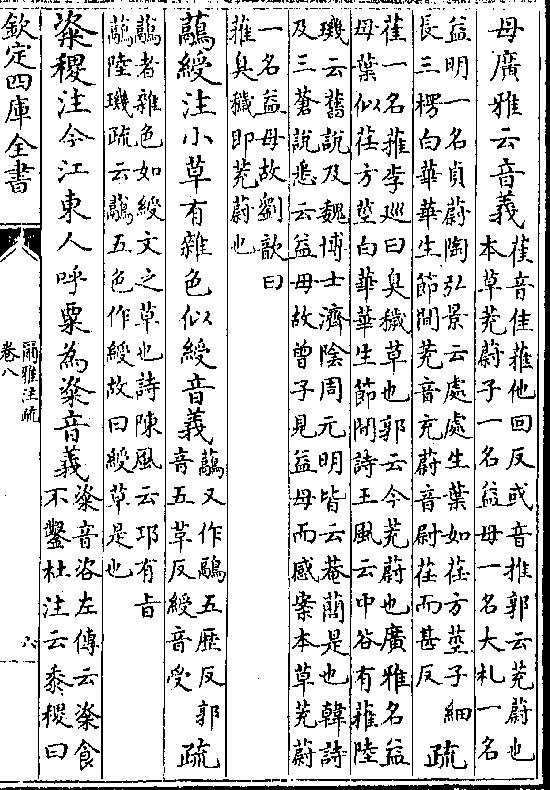 母廣雅云音義萑音佳蓷他回反或音推郭云茺蔚也
本草茺蔚子一名益母一名大札一名
益明一名貞蔚陶弘景云處處生葉如荏方莖子細
長三楞白華華生節間茺音充蔚音尉荏而甚反疏
萑一名蓷李廵曰臭穢草也郭云今茺蔚也廣雅名益
母葉似荏方莖白華華生節間詩王風云中谷有蓷陸
璣云舊說及魏博士濟陰周元明皆云菴䕡是也韓詩
及三蒼說悉云益母故曾子見益母而感案本草茺蔚
一名益母故劉歆曰
蓷臭穢即茺蔚也
虉綬注小草有雜色似綬音義虉又作鷊五歴反郭
音五革反綬音受疏
虉者雜色如綬文之草也詩陳風云邛有旨
虉陸璣疏云虉五色作綬故曰綬草是也
粢稷注今江東人呼粟為粢音義粢音咨左傳云粢食
不鑿杜注云黍稷曰
欽定四庫全書
爾雅注疏
卷八
六